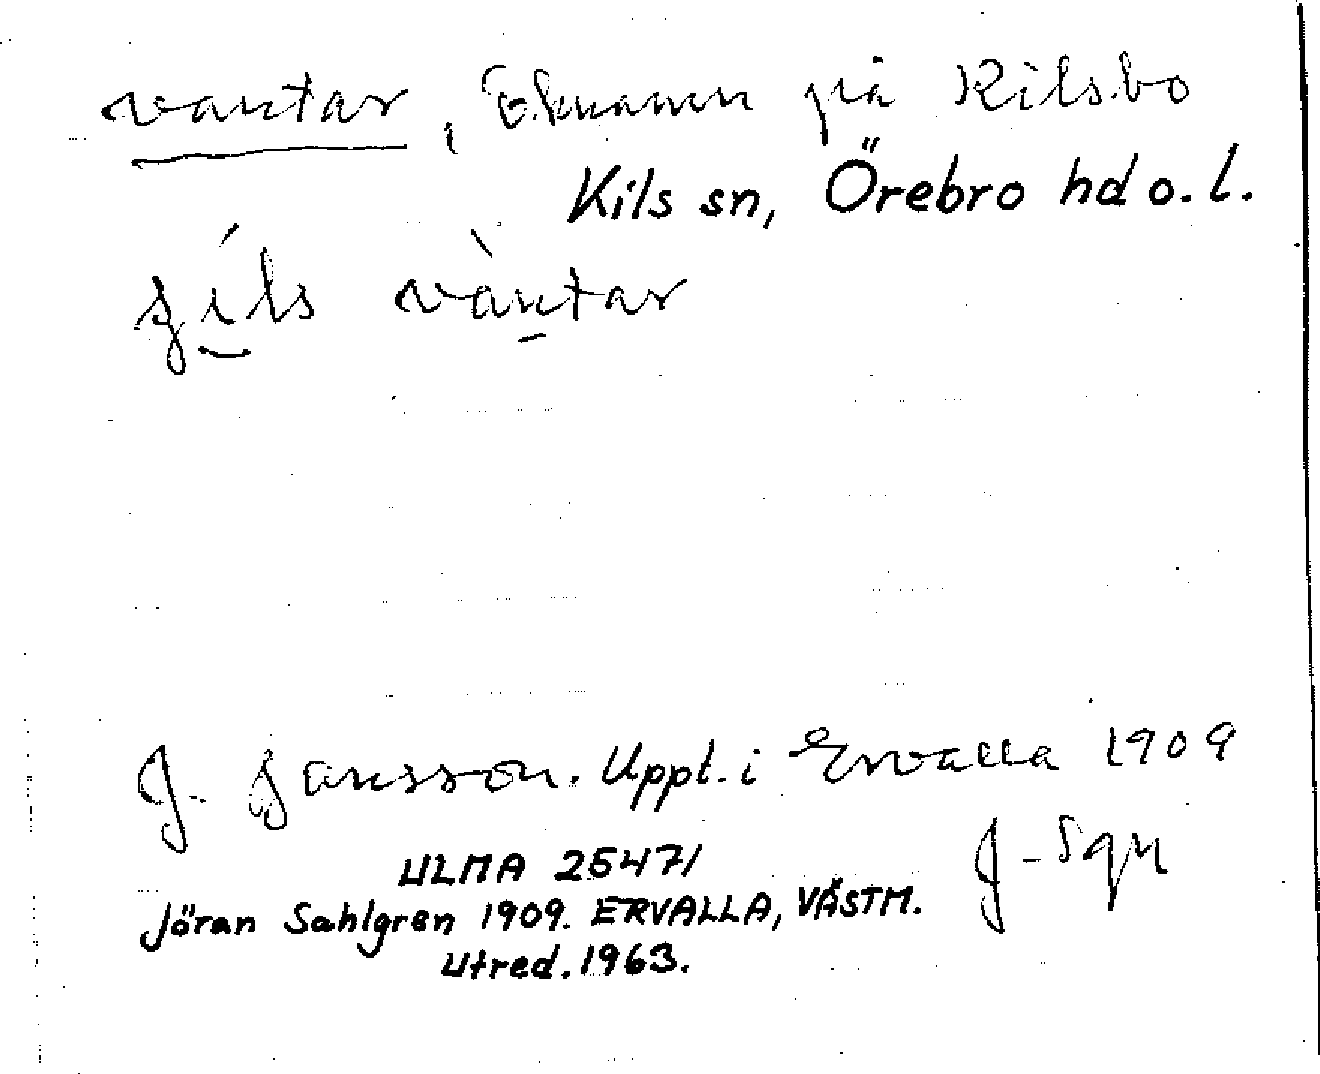 vantar, Öknamn på Kilsbo
Kils sn, Örebro hd o. l.
js vàntar
J. Jansson. Uppt. i Ervalla 1909
J. Sgn
ULMA 25471
Jöran Sahlgren 1909. ERVALLA, VÄSTM.
Utred. 1963.